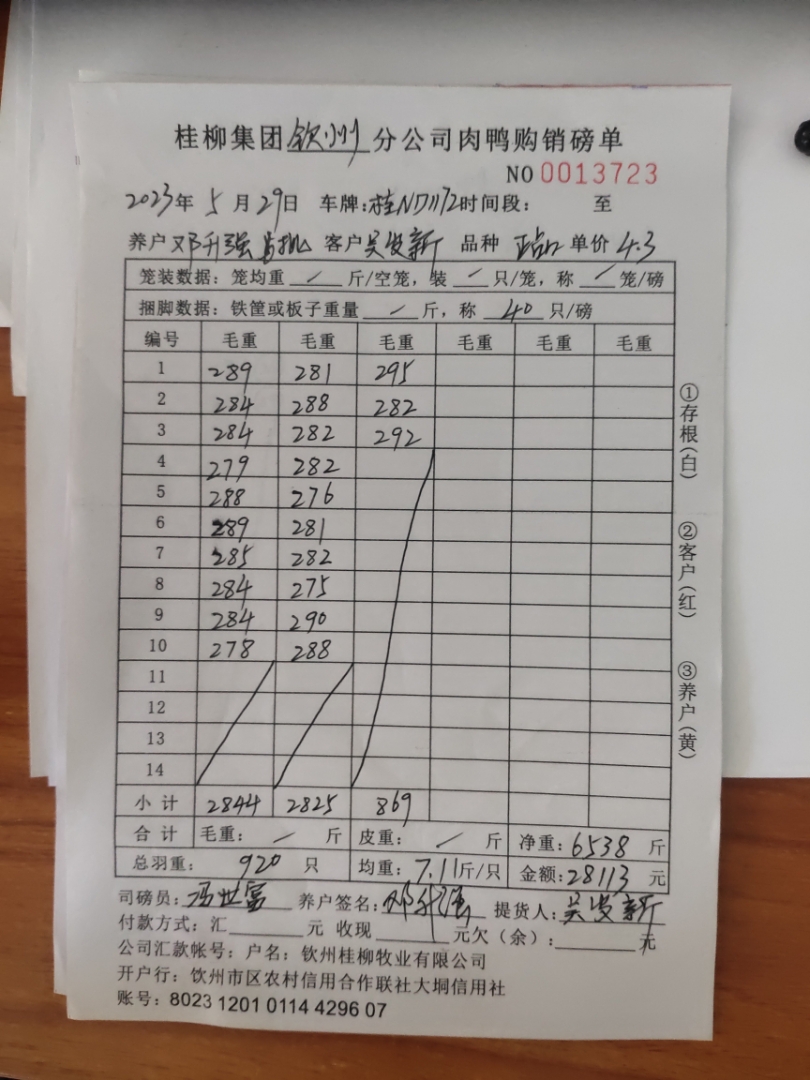 桂柳集团钦州分公司肉鸭购销磅单
NO 0013723
2023年 5月29日 车牌:桂ND1172时间段: 至
养户 邓升强 客户吴发新 品种 单价 4.3
笼装数据:笼均重 / 斤/空笼,装 / 只/笼,称 / 笼/磅
捆脚数据:铁筐或板子重量 / 斤,称 40 只/磅
编号 毛重 毛重 毛重 毛重 毛重 毛重
1 289 281 295
2 284 288 282
3 284 282 292
4 279 282
5 288 276
6 289 281
7 285 282
8 284 275
9 284 290
10 278 288
11
12
13
14
小计 2844 2825 869
合计 毛重: / 斤 皮重: / 斤 净重:6538 斤
总羽重: 920 只 均重:7.11斤/只 金额:28113 元
司磅员:冯世富 养户签名:邓升强 提货人:吴发新
付款方式:汇 元 收现 元欠(余): 元
公司汇款帐号:户名:钦州桂柳牧业有限公司
开户行:饮州市区农村信用合作联社大垌信用社
账号:8023 1201 0114 4296 07
①存根(白)
②客户(红)
③养户(黄)